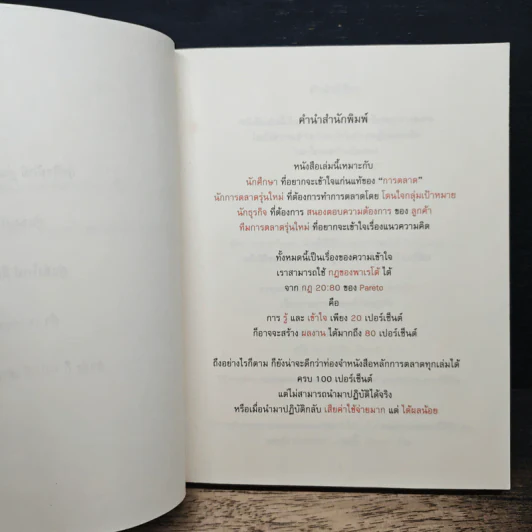 คำนำสำนักพิมพ์
หนังสือเล่มนี้เหมาะกับ
นักศึกษา ที่อยากจะเข้าใจแก่นแท้ของ "การตลาด"
นักการตลาดรุ่นใหม่ ที่ต้องการทำการตลาดโดย โดนใจกลุ่มเป้าหมาย
นักธุรกิจ ที่ต้องการ สนองตอบความต้องการ ของ ลูกค้า
ทีมการตลาดรุ่นใหม่ ที่อยากจะเข้าใจเรื่องแนวความคิด
ทั้งหมดนี้เป็นเรื่องของความเข้าใจ
เราสามารถใช้ กฎของพาเรโต้ ได้
จาก กฎ 20:80 ของ Pareto
คือ
การ รู้ และ เข้าใจ เพียง 20 เปอร์เซ็นต์
ก็อาจจะสร้าง ผลงาน ได้มากถึง 80 เปอร์เซ็นต์
ถึงอย่างไรก็ตาม ก็ยังน่าจะดีกว่าท่องจำหนังสือหลักการตลาดทุกเล่มได้
ครบ 100 เปอร์เซ็นต์
แต่ไม่สามารถนำมาปฏิบัติได้จริง
หรือเมื่อนำมาปฏิบัติกลับ เสียค่าใช้จ่ายมาก แต่ ได้ผลน้อย